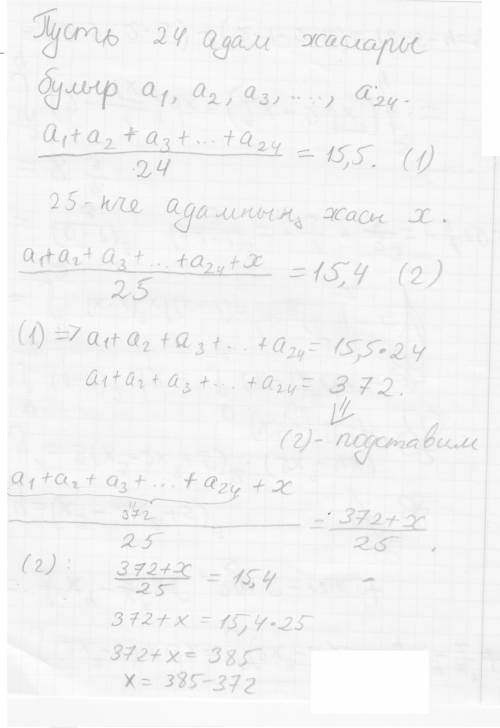 Пусть 24 адам жаслары
булыр a₁, a₂, a₃, ..., a₂₄.
(a₁+a₂+a₃+...+a₂₄)/24 = 15,5. (1)
25-нче адамның жасы x.
(a₁+a₂+a₃+...+a₂₄+x)/25 = 15,4 (2)
(1) => a₁+a₂+a₃+...+a₂₄ = 15,5•24
a₁+a₂+a₃+...+a₂₄ = 372.
⇓
(2) - подставим
(a₁+a₂+a₃+...+a₂₄+x)/25 = (372+x)/25.
372
(2): (372+x)/25 = 15,4
372+x = 15,4•25
372+x = 385
x = 385-372